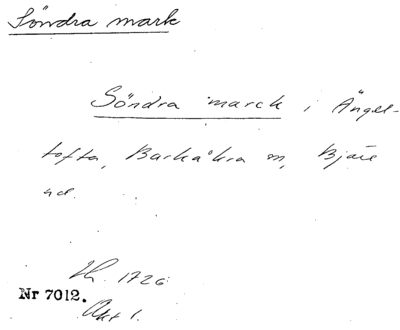 Söndra mark
Söndra march i Ängel-
tofta, Barkåkra sn, Bjäre
hd.
Lh. 1726
Nr 7012.
Akt 1.